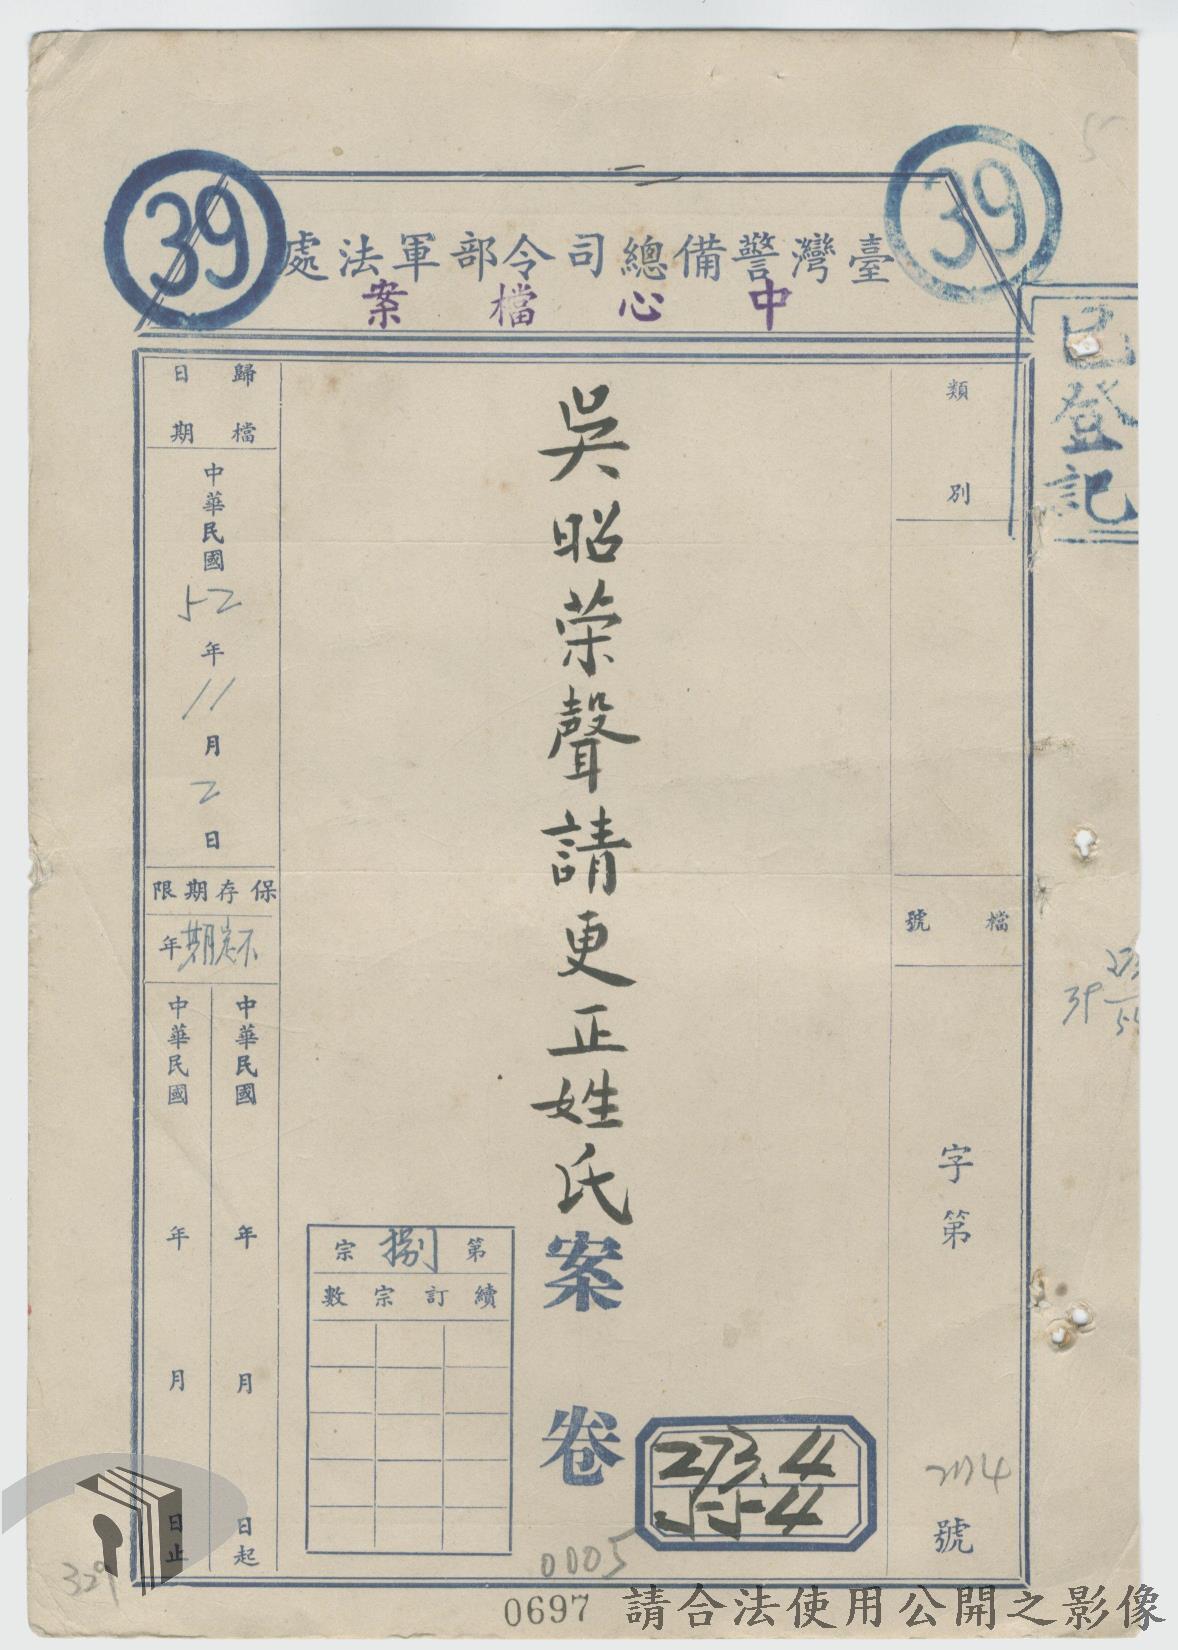 39
39
臺灣警備總司令部軍法處
中心檔案
已登記
類別
檔號
字第
號
吳昭荣聲請更正姓氏案卷
273.4
第捌宗
續訂宗數
歸檔日期
中華民國52年11月2日
保存期限
不定期年
中華民國 年 月 日起
中華民國 年 月 日止
39
329
0005
0697
請合法使用公開之影像